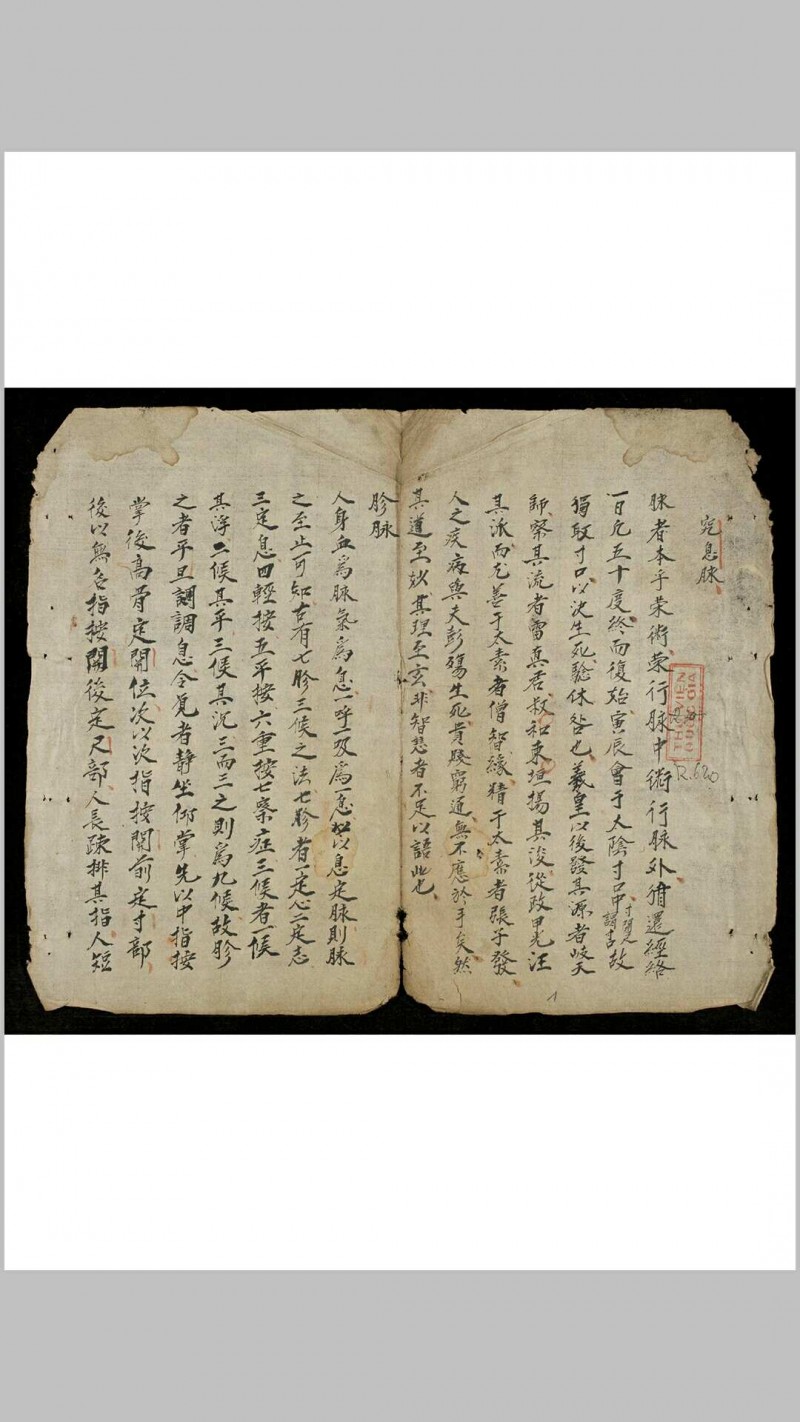 定息脉
脉者本乎荣術荣行脉中術行脉外循還經絡
一日凡五十度終而復始寅辰會于太陰寸口中故
獨取寸口以决生死驗休咎也羲皇以後發其源者岐天
師察其流者雷真君叔和東垣揚其浚從政甲先汪
其派而尤善于太素者僧智緣精于太素者張子發
人之疾病與夫彭殤生死貴賤窮通無不應於手矣然
其道至妙其理至玄非智慧者不足以語此也
胗脉
人身血爲脉氣爲息一呼一吸爲一息以息定脉則脉
之至止可知古有七胗三候之法七胗者一定心二定志
三定息四輕按五平按六重按七察症三候者一候
其浮二候其平三候其沉三而三之則爲九候故胗
之者平旦調調息令覓者静坐仰掌先以中指按
掌後高骨定關位次以次指按關前定寸部
後以無名指按關後定尺部人長疎排其指人短
THU VIEN
QUOC GIA
R.620